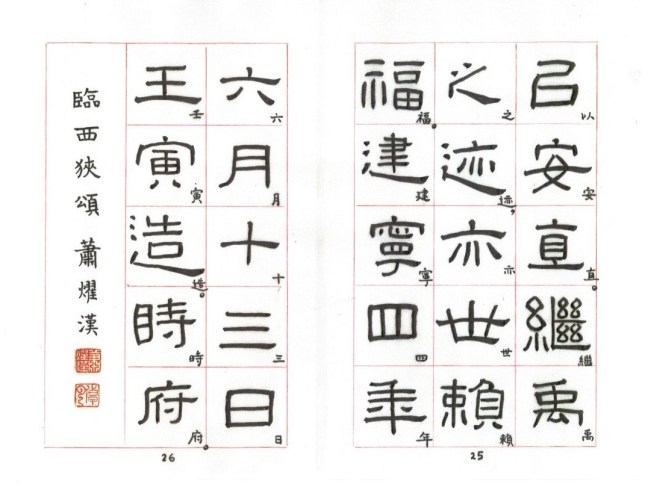 㠯安直繼禹
以安直。繼禹
之迹亦世賴
之迹,亦世賴
福建寧四年
福。建寧四年
25
六月十三日
六月十三日
壬寅造時府
壬寅造。時府。
臨西狹頌 蕭燿漢
26